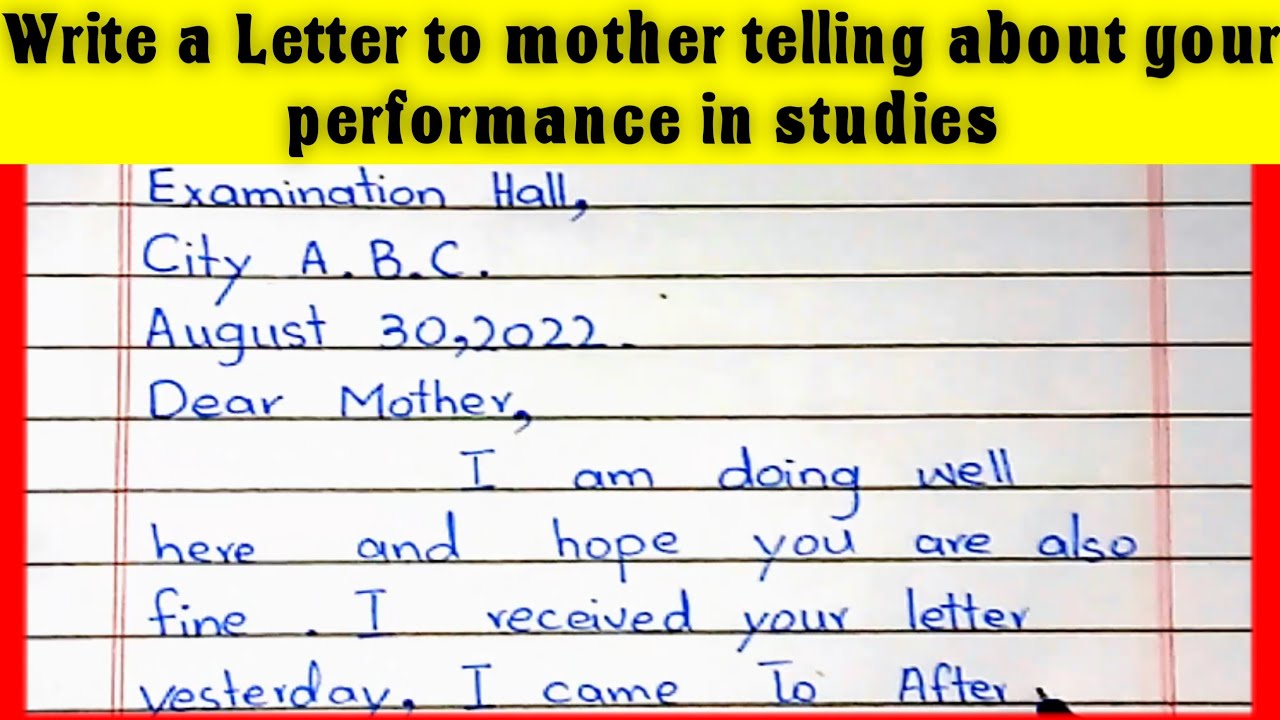 Write a Letter to mother telling about your
performance in studies
Examination Hall,
City A.B.C.
August 30,2022.
Dear Mother,
I am doing well
here and hope you are also
fine. I received your letter
yesterday. I came To After